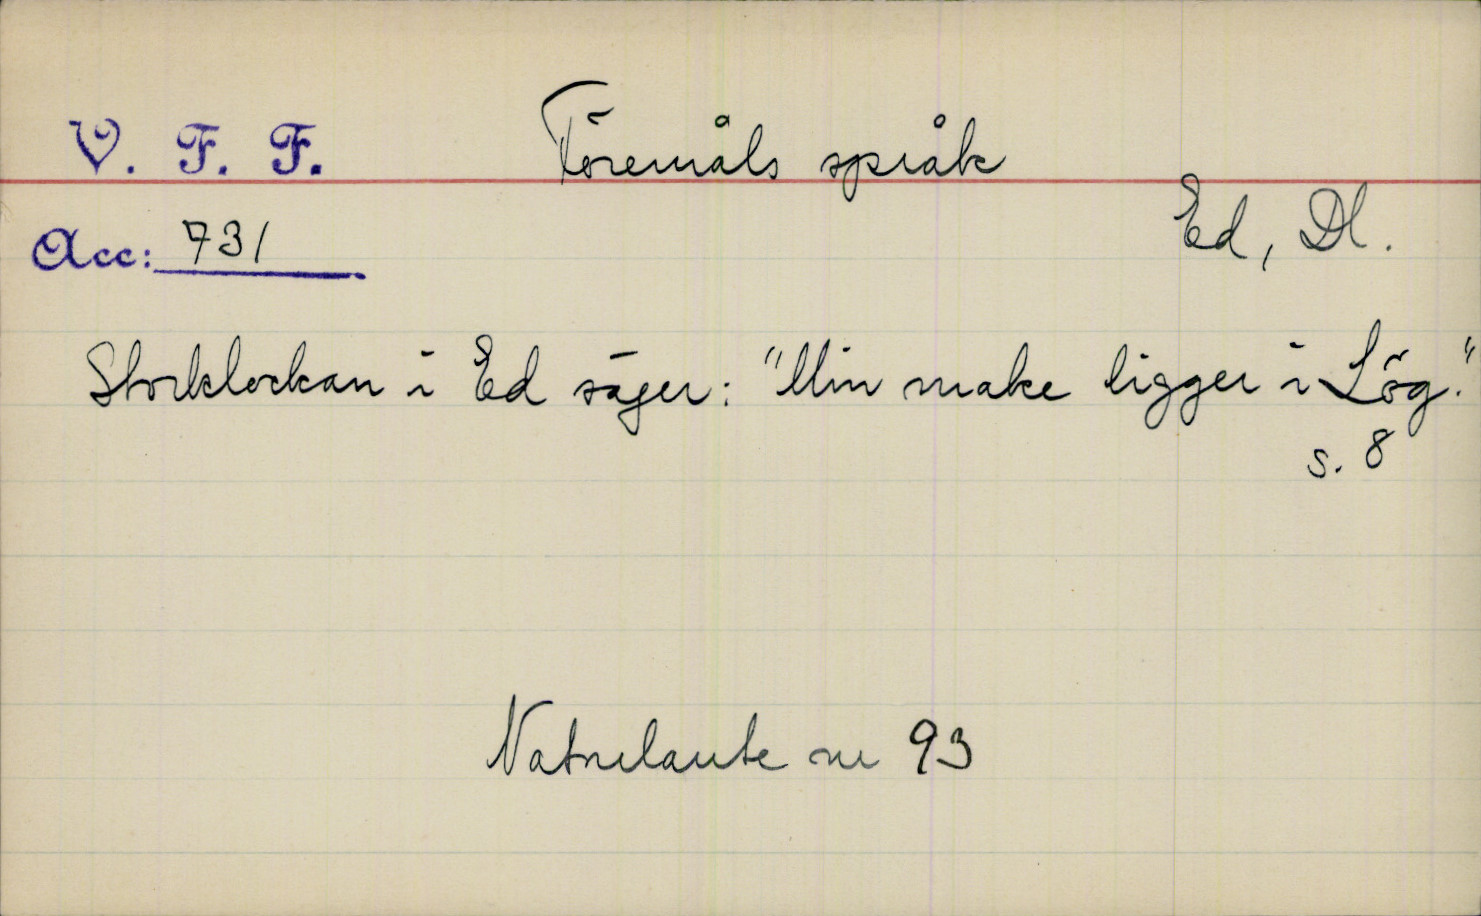 V. F. F.
Föremåls språk
Ed, Dl.
Acc: 731
Storklockan i Ed säger: "Min make ligger i Lög."
s. 8
Naturlaute nr 93